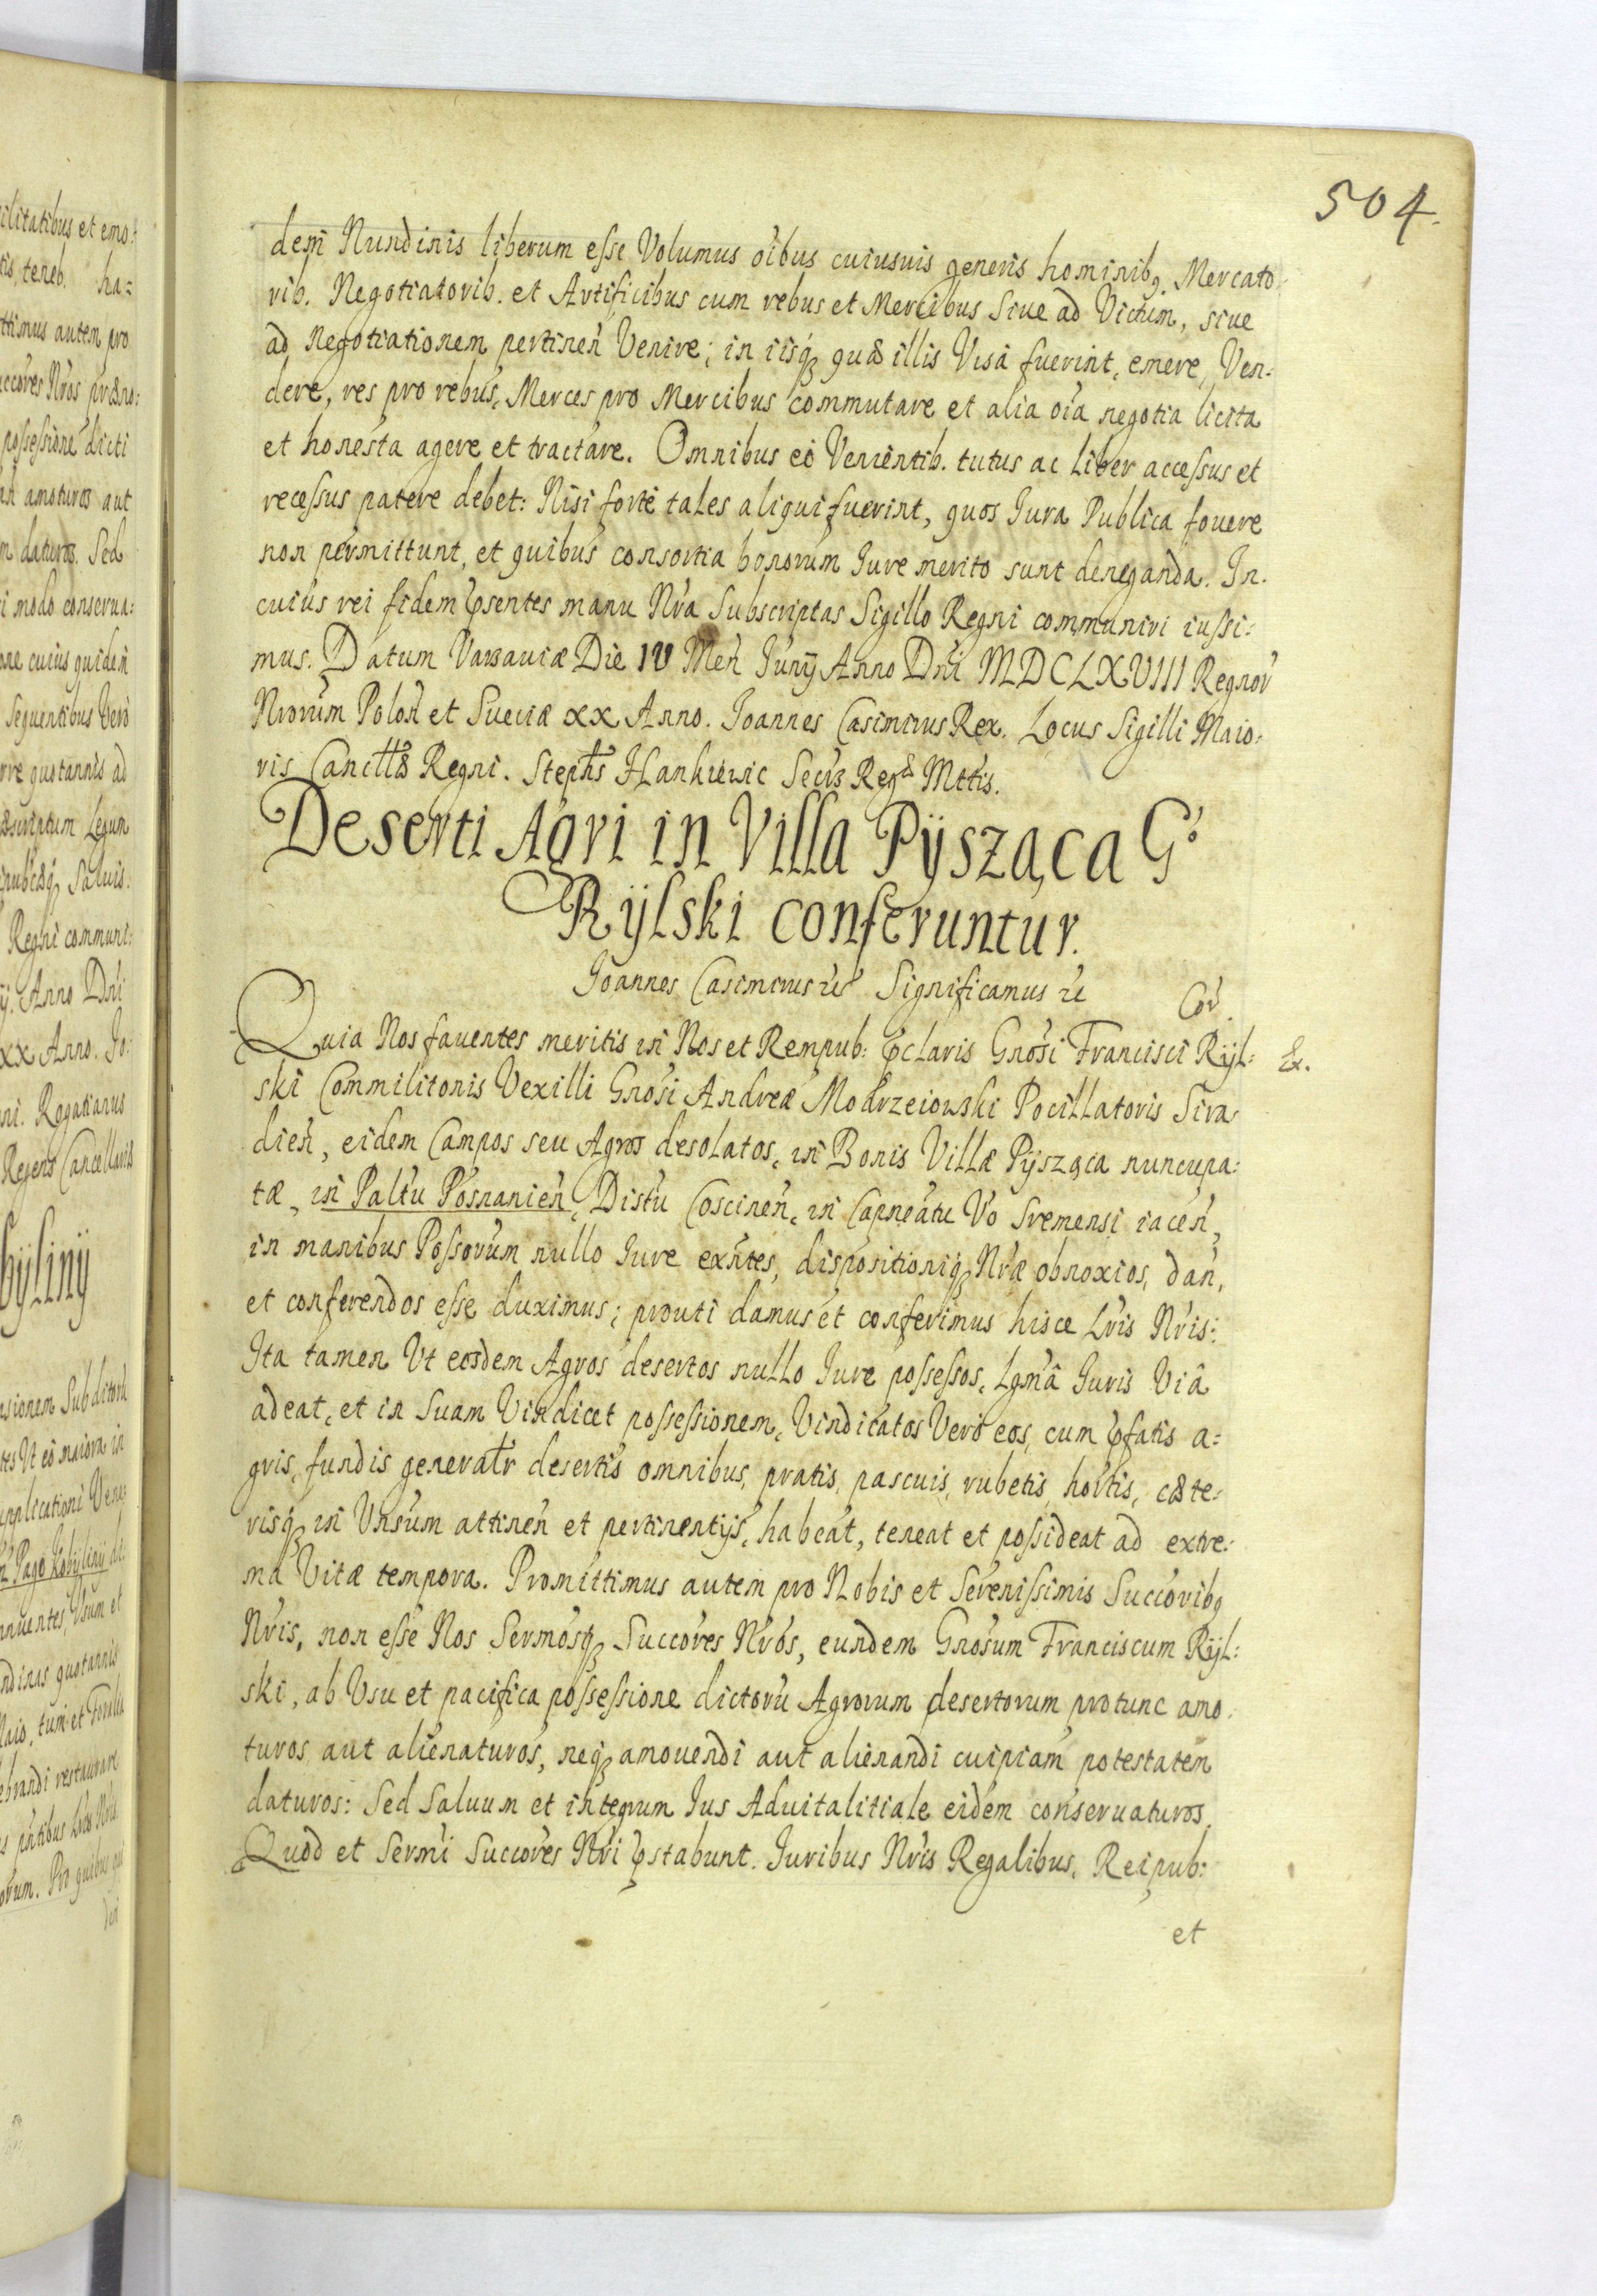 504.
dem̃ Nundinis liberum esse Volumus oĩbus cuiusuis generis hominibq. Mercato
rib. Negotiatorib. et Artificibus cum rebus et Mercibus Siue ad Victum, siue
ad Negotiationem pertineñ Venire; in iisq quæ illis Visa fuerint, emere, Ven:
dere, res pro rebus, Merces pro Mercibus commutare et alia oĩa negotia licita
et honesta agere et tractare. Omnibus eò Venientib. tutus ac Liber accessus et
recessus patere debet: Nisi fortè tales aliqui fuerint, quos Jura Publica fouere
non permittunt, et quibus consortia bonorum Jure merito sunt deneganda. In.
cuius rei fidem p̃sentes manu Nr̃a Subscriptas Sigillo Regni communiri iussi:
mus. Datum Varsauiæ Die IV Meñ Junÿ Anno Dni MDCLXVIII Regnor̃
Nrorum Poloñ et Sueciæ XX Anno. Joannes Casimirus Rex. Locus Sigilli Maio:
ris Cancllæ Regni. Stephs Hankiewic Secrs Regæ Mttis.
Deserti Agri in Villa Pÿsząca G.
Rÿlski conferuntur.
Joannes Casimirus &c Significamus &c
Cor̃.
Quia Nos fauentes meritis in Nos et Rempub: p̃claris Gnosi Francisci Rÿl: &.
ski Commilitonis Vexilli Gnosi Andreæ Modrzeiowski Pocillatoris Sira
dieñ, eidem Campos seu Agros desolatos, in Bonis Villæ Pÿsząca nuncupa:
tæ, in Paltu Posnanieñ, Distu Coscineñ, in Capneatu Vo Sremensi iaceñ,
in manibus Possorum nullo Jure exñtes, dispositioniq Nræ obnoxios, dañ,
et conferendos esse duximus; prouti damus et conferimus hisce Lris Nris:
Ita tamen Vt eosdem Agros desertos nullo Jure possessos, Lgmâ Juris Viâ
adeat, et in Suam Vindicet possessionem, Vindicatos Verò eos, cum p̃fatis a:
gris, fundis generaltr desertis omnibus, pratis, pascuis, rubetis, hortis, cæte:
risq in Vnsum attineñ et pertinentÿs, habeat, teneat et possideat ad extre:
ma Vitæ tempora. Promittimus autem pro Nobis et Serenissimis Succoribq
Nris, non esse Nos Sermosq Succores Nros, eundem Gnosum Franciscum Rÿl:
ski, ab Vsu et pacifica possessione dictorũ Agrorum desertorum protunc amo:
turos aut alienaturos, neq amouendi aut alienandi cuipiam potestatem
daturos: Sed Saluum et integrum Jus Aduitalitiale eidem conseruaturos.
Quod et Sermi Succores Nri p̃stabunt. Juribus Nris Regalibus, Reipub:
et